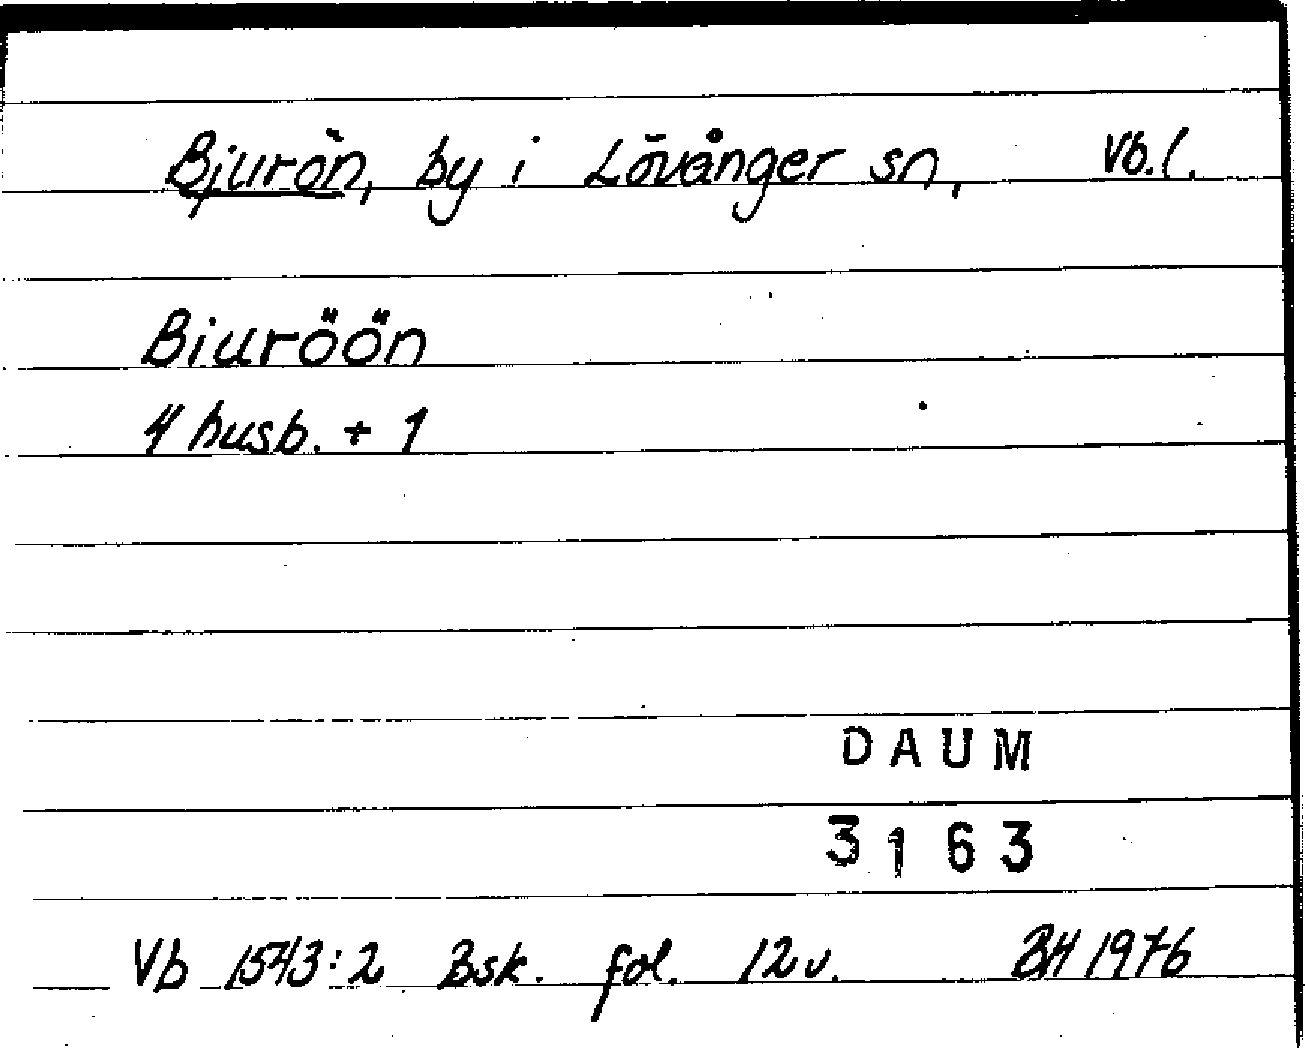 Bjurön, by i Lövånger sn, Vb.l.
Biuröön
4 husb. + 1
DAUM
3163
Vb 1543:2 Bsk. fol. 12v. BH 1976